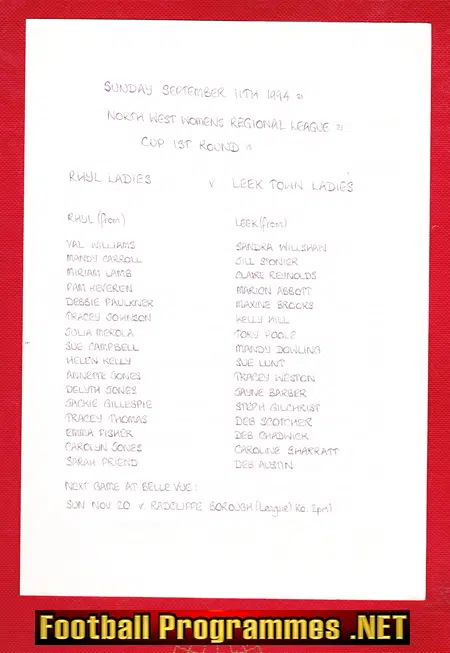 SUNDAY SEPTEMBER 11TH 1994
NORTH WEST WOMENS REGIONAL LEAGUE
CUP 1ST ROUND
RHYL LADIES V LEEK TOWN LADIES
RHYL (from) LEEK (from)
VAL WILLIAMS SANDRA WILLSHAW
MANDY CARROLL JILL STONIER
MIRIAM LAMB CLAIRE REYNOLDS
PAM HEVEREN MARION ABBOTT
DEBBIE FAULKNER MAXINE BROOKS
TRACEY JOHNSON KELLY HILL
JULIA MEROLA TORY POOLE
SUE CAMPBELL MANDY DOWLING
HELEN KELLY SUE LUNT
ANNETTE JONES TRACEY WESTON
DELYTH JONES JAYNE BARBER
JACKIE GILLESPIE STEPH GILCHRIST
TRACEY THOMAS DEB SCOTCHER
EMMA FISHER DEB CHADWICK
CAROLYN JONES CAROLINE SHARRATT
SARAH FRIEND DEB AUSTIN
NEXT GAME AT BELLE VUE:
SUN NOV 20 V RADCLIFFE BOROUGH (League) Ko. 2pm)
Football Programmes .NET